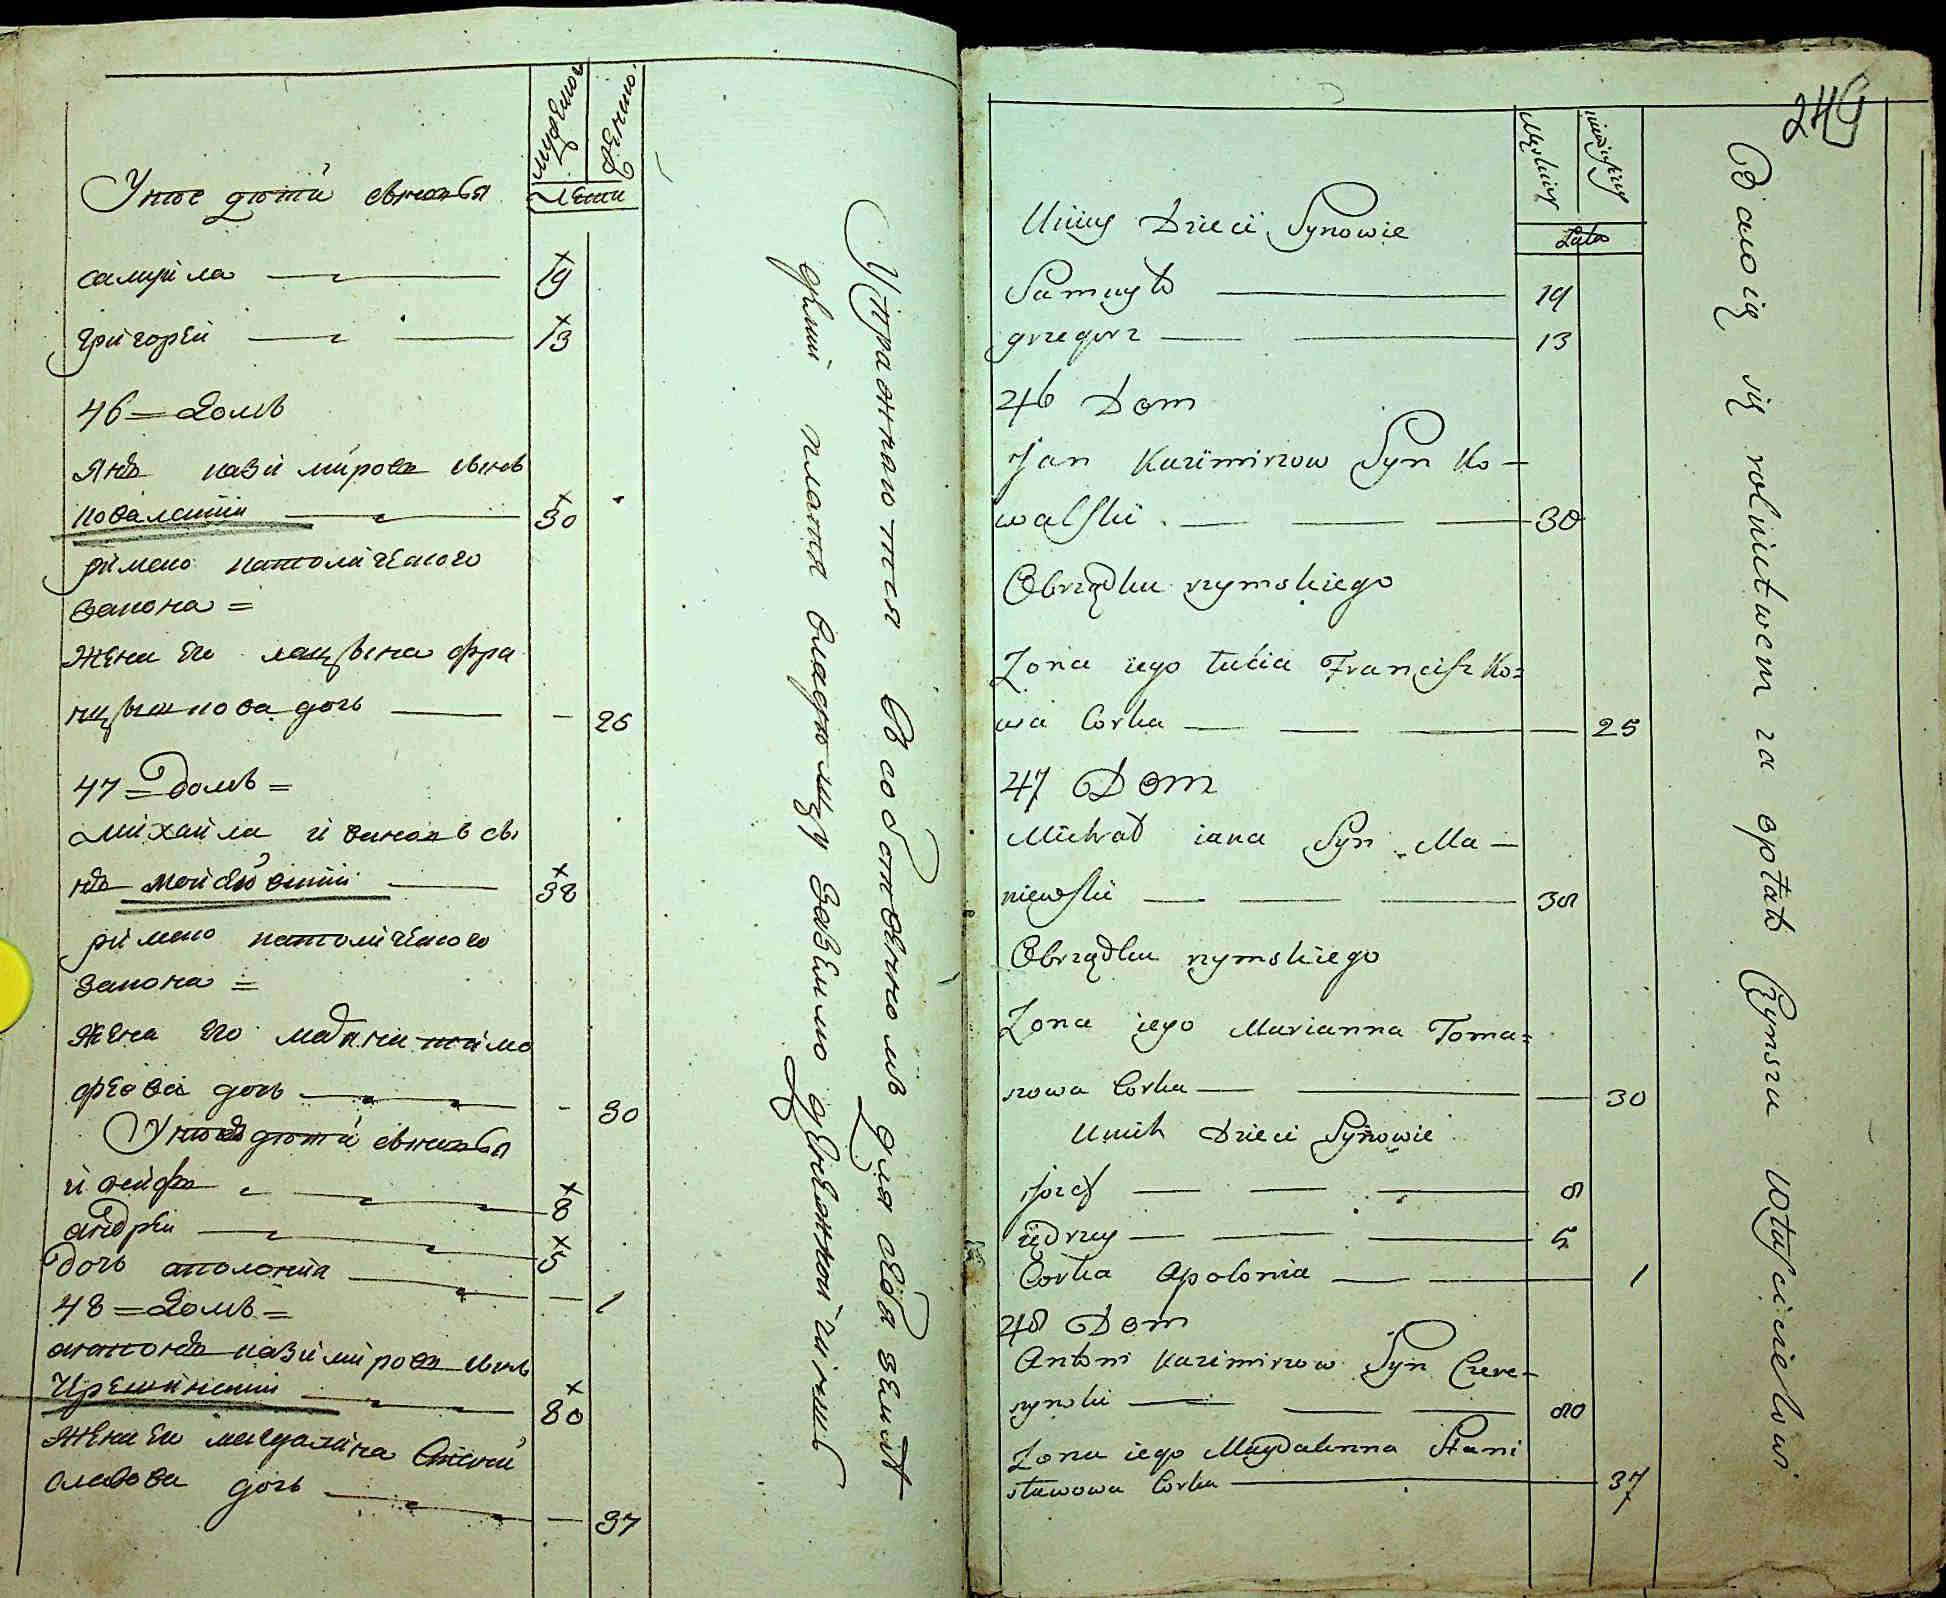 мужеска
женска
Лета
У нюе дѣти сыновья
самуйла 19
григорей 13
46 = Домъ
янъ казимирова сынъ
ковалский 30
римско католическаго
закона =
жена его луцыя фра
нцышкова дочь — 25
47 = домъ =
михайла иванова сы
нъ 38
римско католическаго
закона =
жена его марянна тимо
феова дочь - 30
У нихъ дѣти сыновья
иосифъ 8
андрей 5
дочь аполония — 1
48 = Домъ =
антонъ казимирова сынъ
80
жена его магдалина стани
славова дочь — 37
Упражняются въ собственномъ для себя землѣ
делии платя владюмцу за землю денежной чиншъ
249
Męskiey
Lata
Unieÿ Dzieci Synowie
Samuyło 19
grzegorz 13
46 Dom
Jan Kazimirzow Syn Ko-
walski 30
Obrządku rzymskiego
Zona iego Łucia Franciszko=
wa Corka — 25
47 Dom
Michał iana Syn Ma-
niewski 38
Obrządku rzymskiego
Zona iego Marianna Toma=
szowa Corka — 30
Unich Dzieci Synowie
Jozef 8
iędrzey 5
Corka Apolonia 1
48 Dom
Antoni Kazimirzow Syn Czere-
80
Zona iego Magdalenna Stani
sławowa Corka 37
Bawią się rolnictwem za opłatą Czynszu Właścicielowi